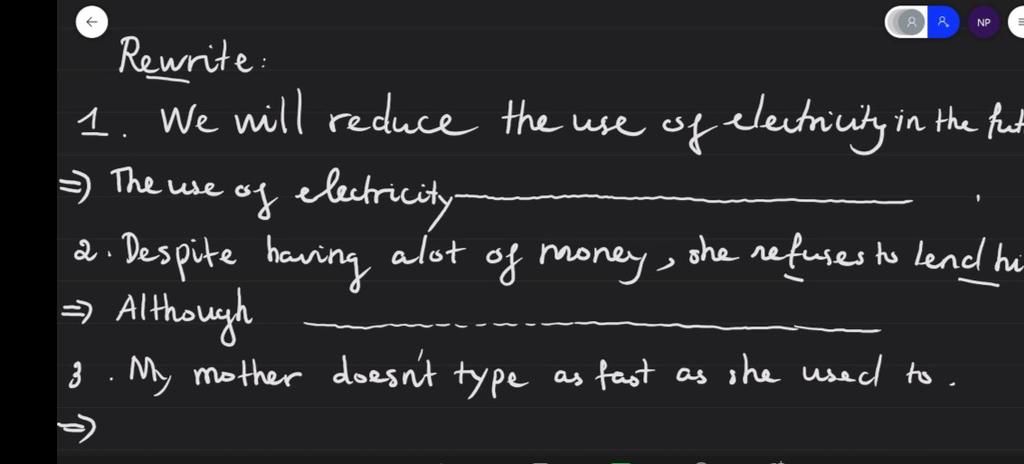 NP
Rewrite:
1. We will reduce the use of electricity in the fut
=> The use of electricity .
2. Despite having alot of money, she refuses to lend hi
=> Although
3. My mother doesn't type as fast as she used to.
=>